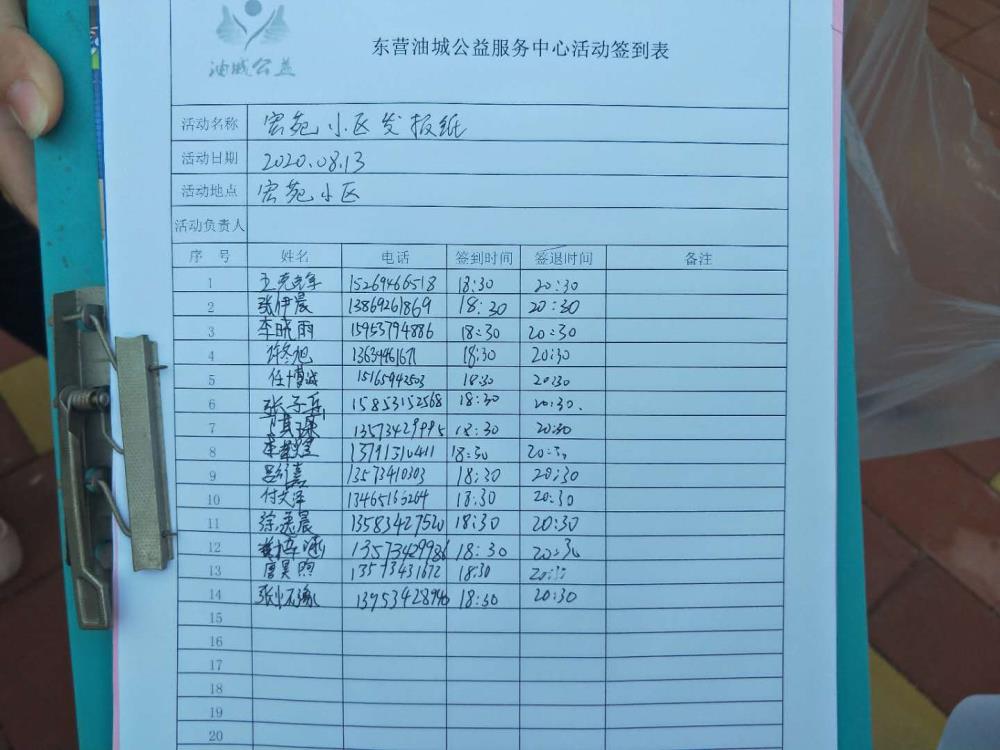 油城公益
东营油城公益服务中心活动签到表
活动名称 宏苑小区发报纸
活动日期 2020.08.13
活动地点 宏苑小区
活动负责人
序 号 姓名 电话 签到时间 签退时间 备注
1 15269466518 18:30 20:30
2 张伊晨 13869261869 18:30 20:30
3 李晓雨 15953794886 18:30 20:30
4 许冬旭 18:30 20:30
5 任博诚 15165942503 18:30 20:30
6 张子岳 15853152568 18:30 20:30.
7 13573429995 18:30 20:30
8 13791310411 18:30
9 13573410303 18:30 20:30
10 付文泽 18:30 20:30
11 晨 13583427520 18:30 20:30
12 13573429986 18:30 20:30
13 唐昊煦 13573431672 18:30
14 18:30 20:30
15
16
17
18
19
20